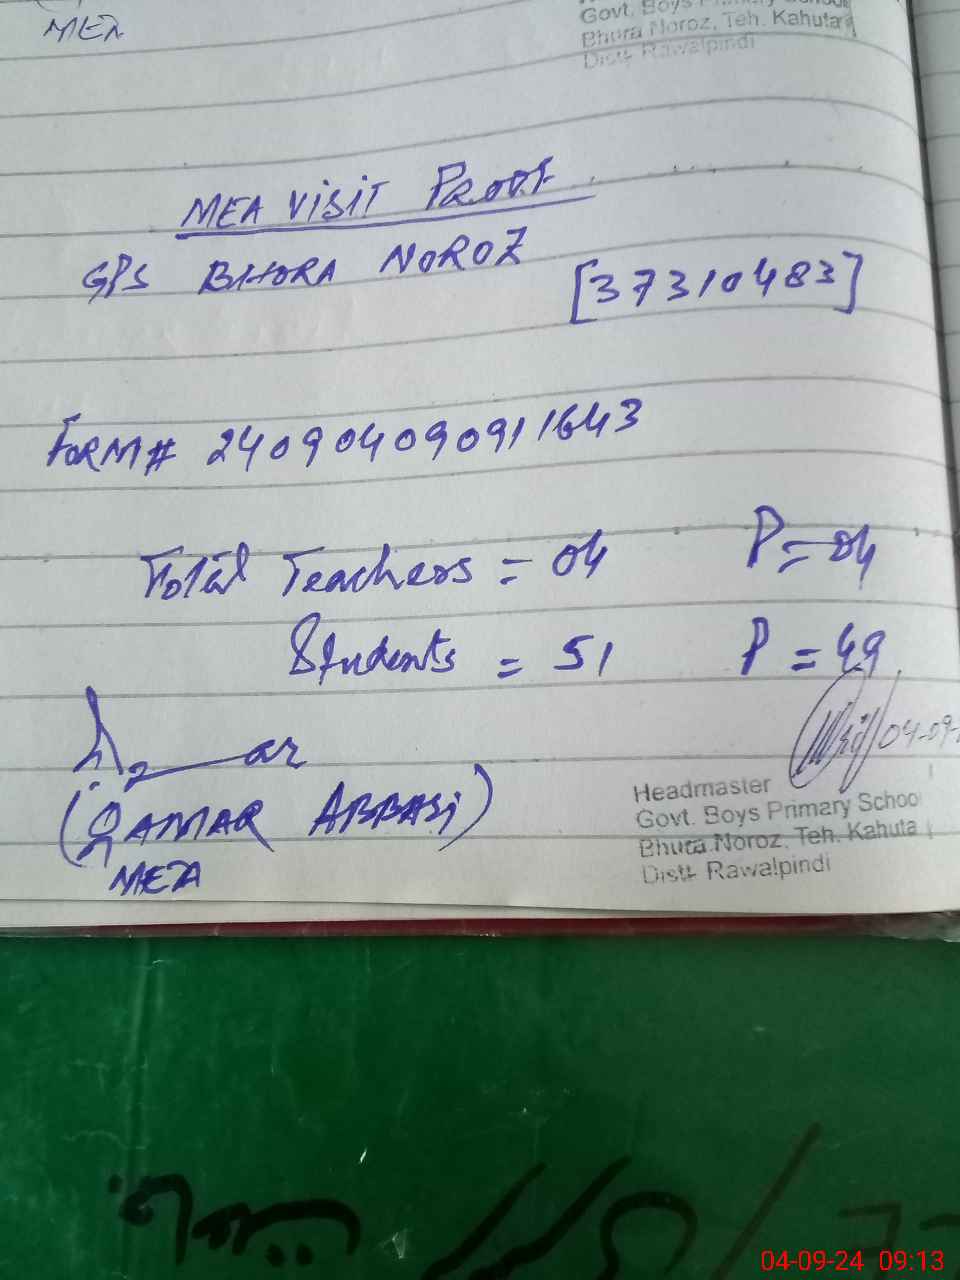 MEA
Govt. Boys Primary School
Bhura Noroz, Teh. Kahuta
Distt Rawalpindi
MEA VISIT PROOF
GPS BHORA NOROZ [37310483]
FORM# 240904090911643
Total Teachers = 04 P = 04
Students = 51 P = 49
04-09-
(QAMAR ABBASI)
MEA
Headmaster
Govt. Boys Primary School
Bhura Noroz, Teh. Kahuta
Distt Rawalpindi
04-09-24 09:13